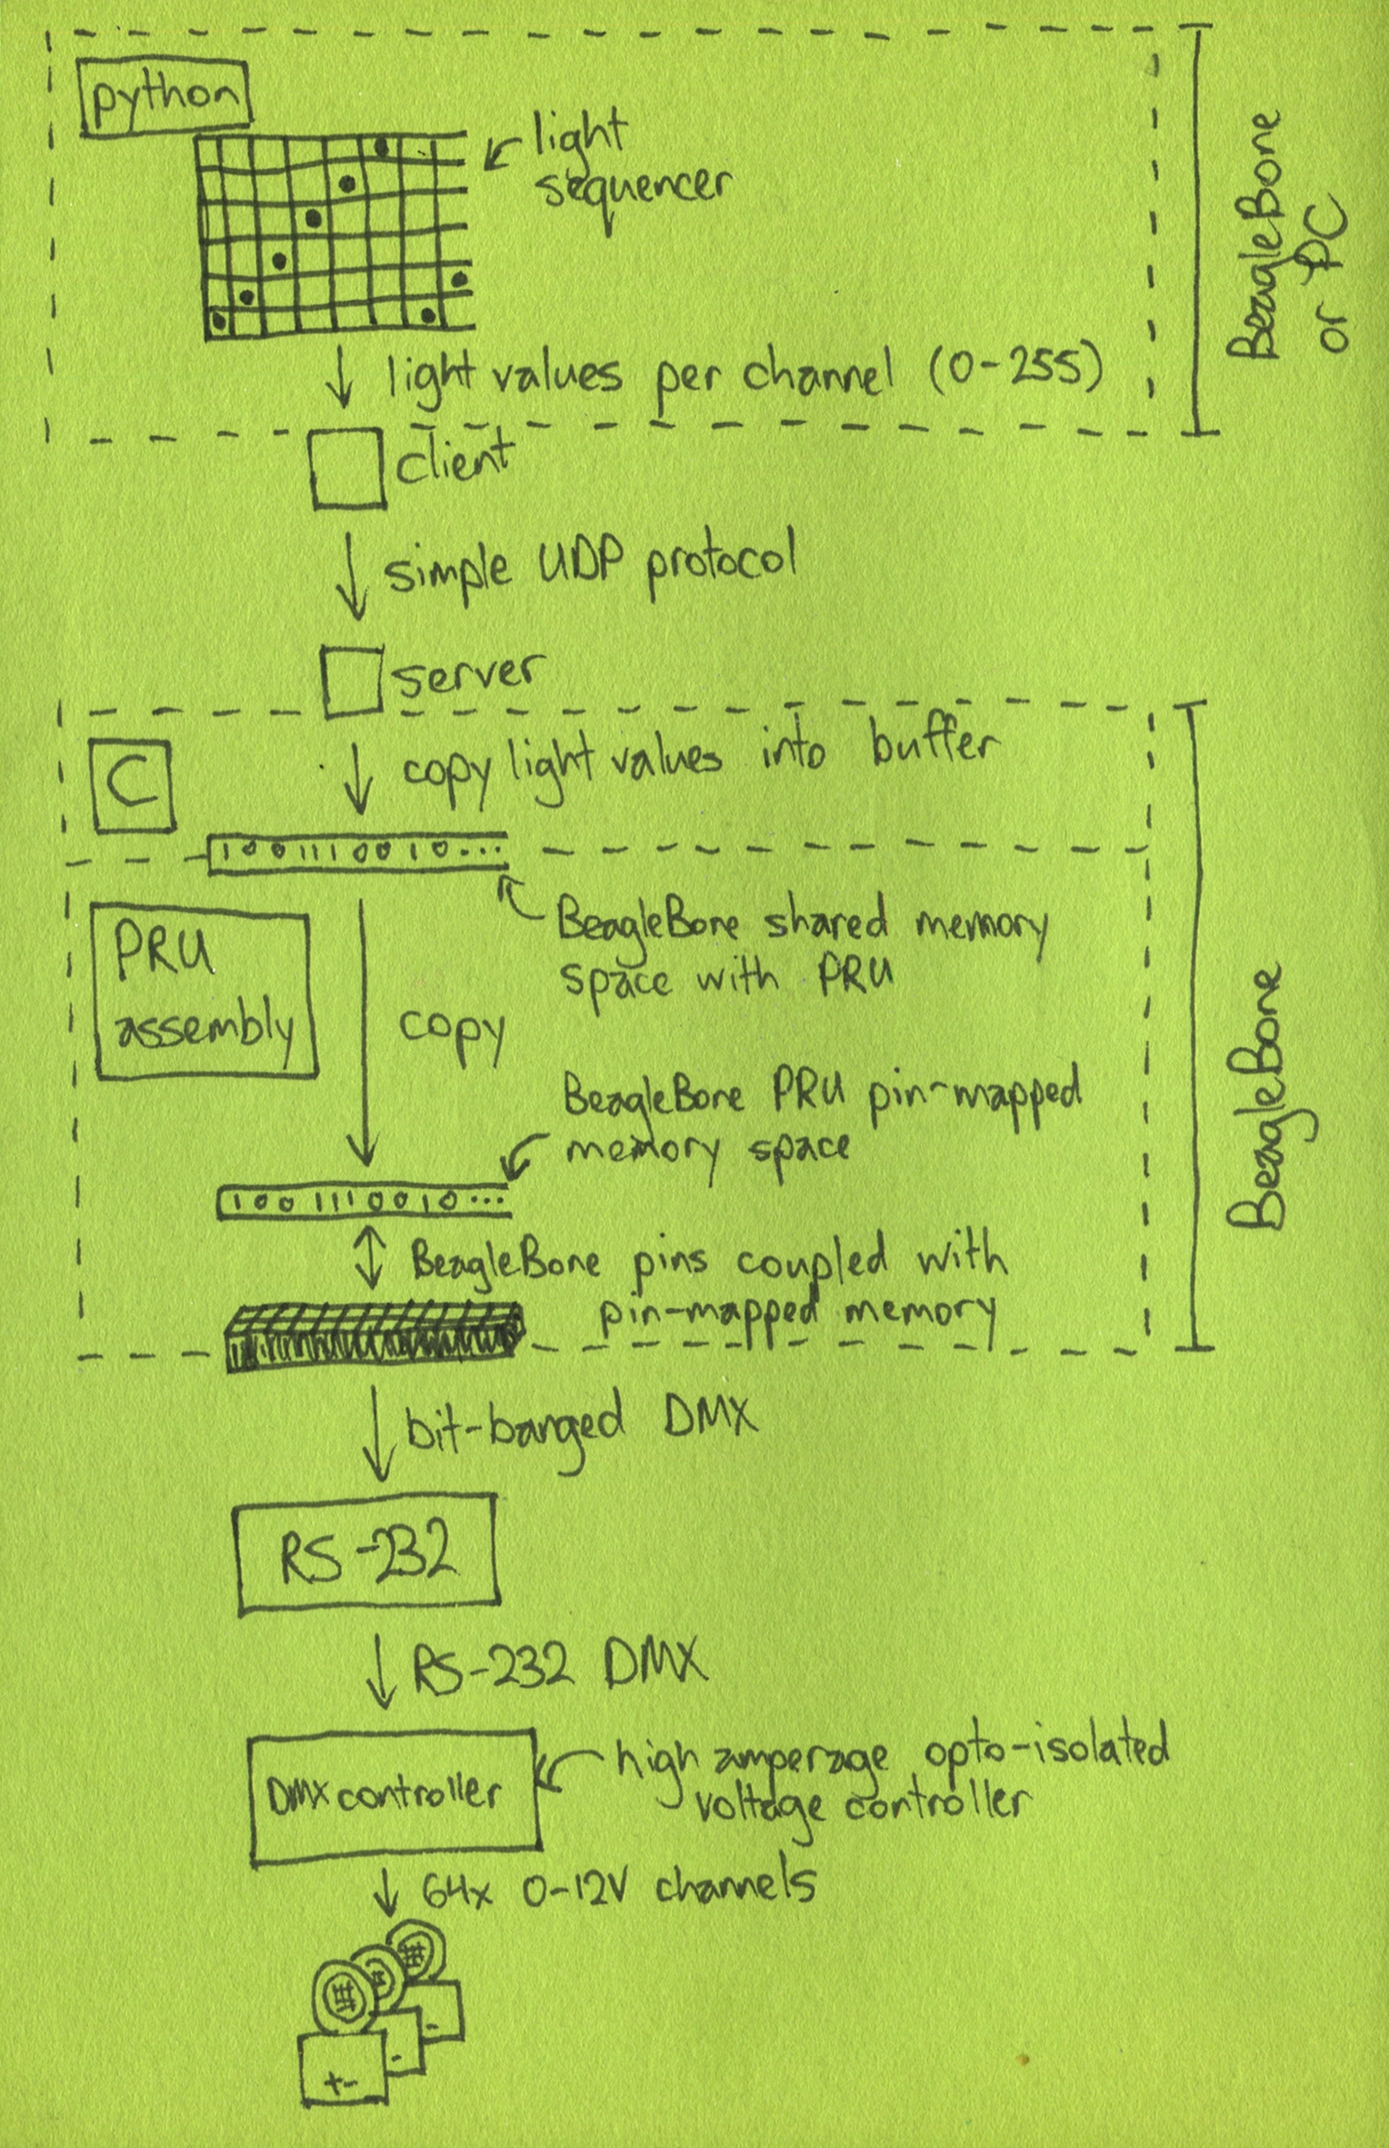 python
light
sequencer
BeagleBone
or PC
light values per channel (0-255)
client
simple UDP protocol
server
C
copy light values into buffer
1 0 0 1 1 1 0 0 1 0 ...
BeagleBone shared memory
space with PRU
PRU
assembly
copy
BeagleBone
BeagleBone PRU pin-mapped
memory space
1 0 0 1 1 1 0 0 1 0 ...
BeagleBone pins coupled with
pin-mapped memory
bit-banged DMX
RS-232
RS-232 DMX
DMX controller
high amperage opto-isolated
voltage controller
64x 0-12V channels
+-
-
-